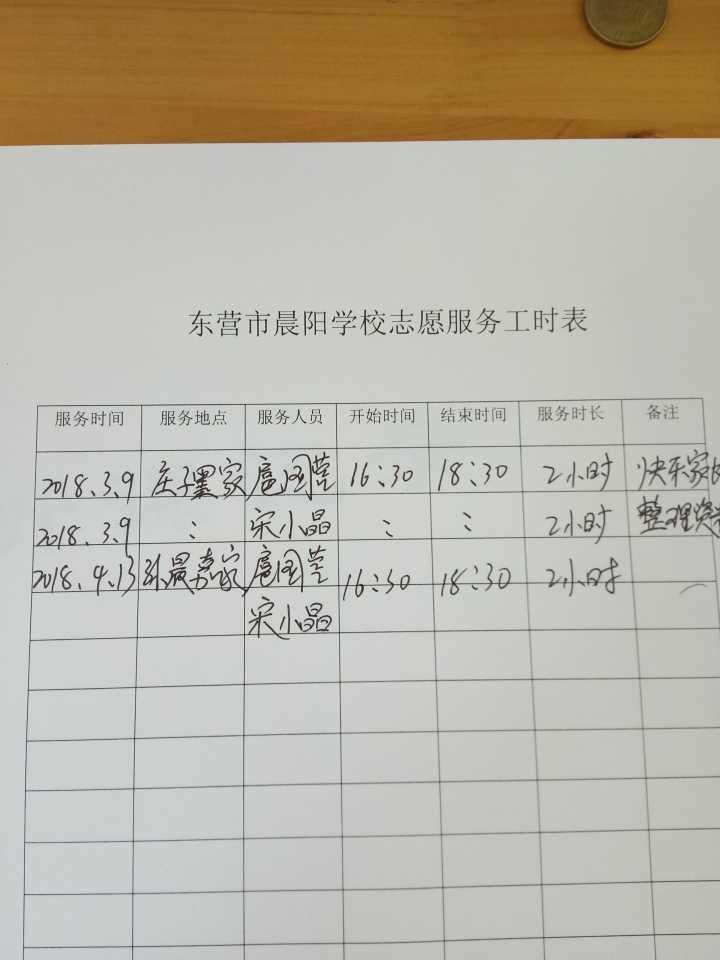 东营市晨阳学校志愿服务工时表
服务时间 服务地点 服务人员 开始时间 结束时间 服务时长 备注
2018.3.9 庄子墨家 扈国莹 16:30 18:30 2小时 快乐家
2018.3.9 : 宋小晶 : : 2小时 整理资
2018.4.13 孙晨嘉家 扈国莹 16:30 18:30 2小时
宋小晶